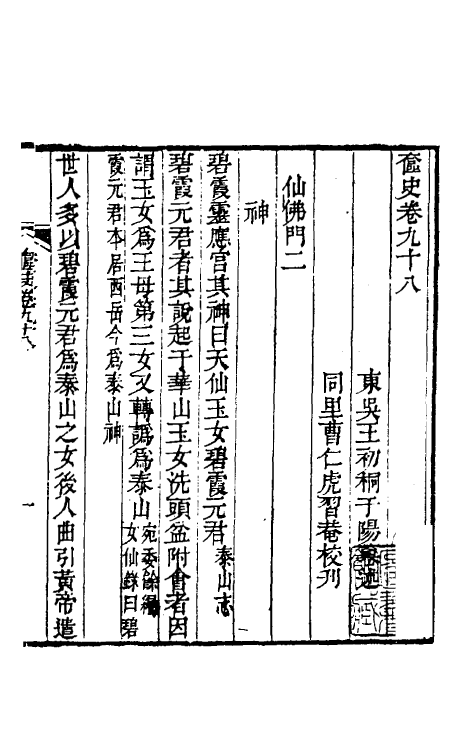 奩史卷九十八
東吳王初桐于陽纂述
同里曹仁虎習菴校刋
仙佛門二
神
碧霞靈應宮其神曰天仙玉女碧霞元君泰山志
碧霞元君者其說起于華山玉女洗頭盆附會者因
謂玉女為王母第三女又轉譌為泰山宛委餘編
女仙錄曰碧
霞元君本居西岳今為泰山神
世人多以碧霞元君為泰山之女後人曲引黃帝遣
奩史卷九十八
一